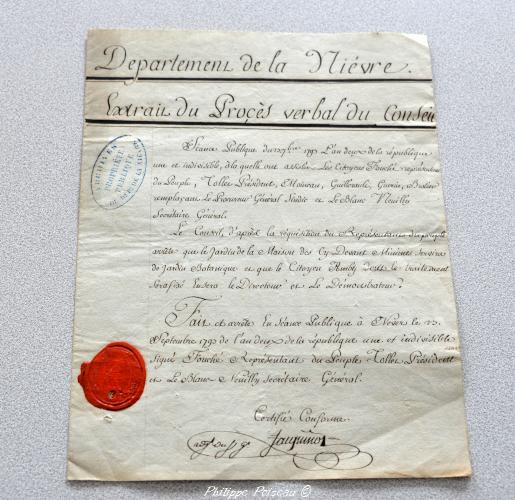 Département de la Nièvre.
Extrait du Procès verbal du Conseil
Séance Publique du 23 7bre 1793 L'an deux de la république
une et indivisible, à laquelle ont assisté Les Citoyens Fouché représentant
du Peuple, Tollet Président,
remplaçant Le Procureur Général Sindic et Le Blanc Neuilly
Secrétaire Général.
Le Conseil, d'après la réquisition du Représentant du peuple
arrête que le Jardin de la Maison des Cy Devant Minimes servira
de Jardin Botanique et que le Citoyen le traitement
sera fixé En sera le Directeur et Le Démonstrateur.
Fait et arrêté En séance Publique à Nevers le 23
Septembre 1793 de l'an deux de la république une et indivisible
Signé Fouché Représentant du Peuple Tollet Président
et Le Blanc Neuilly secrétaire Général.
Certifié Conforme
PROPRIÉTÉ
PUBLIQUE
Philippe Poiseau ©